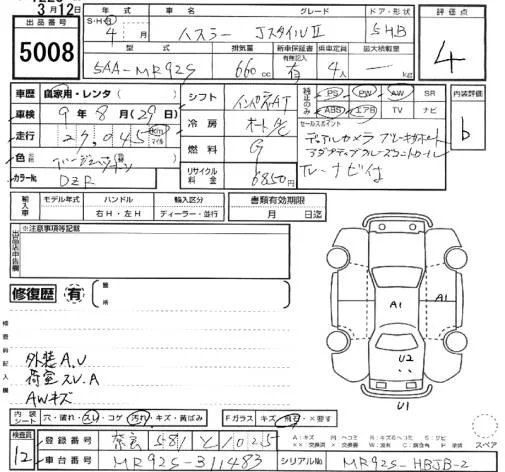 3月12日
出品番号
5008
年式 車名 グレード ドア・形状 評価点
S・H・R 4年 月 ハスラー JスタイルⅡ 5HB
4
型式 排気量 新車保証書 乗車定員 最大積載量
有無記入
5AA-MR92S 660cc 有 4人 ― kg
車歴 自家用・レンタ( )
車検 9年8月(29)日
走行 27,045 km マイル
色
カラーNo. DZR
シフト インパネAT
冷房 オートAC
燃料 G
リサイクル料金 6850円
純正のみ PS PW AW SR
ABS エアB TV ナビ
内装評価
b
セールスポイント
デュアルカメラブレーキサポート
アダプティブクルーズコントロール
TV-ナビ付
輸入車 モデル年式 ハンドル 輸入区分 書類有効期限
右H・左H ディーラー・並行 月 日迄
出品店申告欄
※注意事項等記載
修復歴 有 箇所
検査員記入欄
外装A.U
荷室スレ.A
AWキズ
A1 A1
U2
U1
内装シート 穴・破れ・スレ・コゲ・汚れ・キズ・黄ばみ Fガラス キズ・飛石・×要す
検査員 12
登録番号 奈良 581 と 1025
A:キズ U:ヘコミ B:キズ&ヘコミ S:サビ P:塗装
××:交換済 ×:要交換 W:補修済 C:腐食
スペア
車台番号 MR92S-311483 シリアルNo. MR92S-HBJB-2